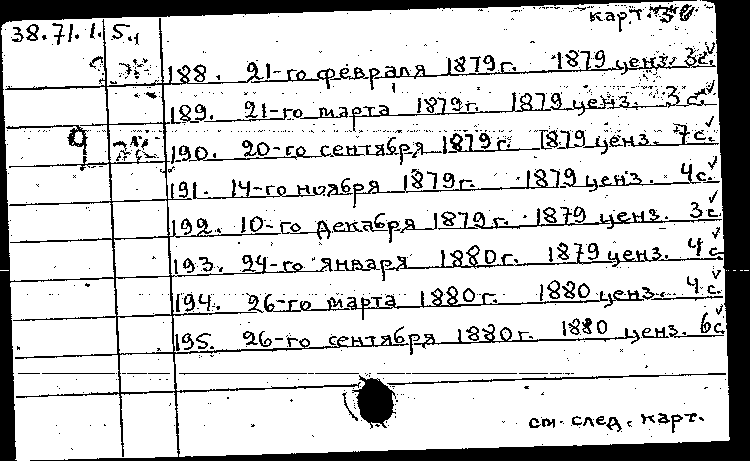 38.71.1. 5.1 карт. 30
188. 21-го февраля 1879г. 1879 ценз. 3с.
189. 21-го марта 1879г. 1879 ценз. 3с.
9 190. 20-го сентября 1879г. 1879 ценз. 7с.
191. 14-го ноября 1879г. 1879 ценз. 4с.
192. 10-го декабря 1879г. 1879 ценз. 3с
193. 24-го января 1880г. 1879 ценз. 4с
194. 26-го марта 1880г. 1880 ценз. 4с.
195. 26-го сентября 1880г. 1880 ценз. 6с.
см. след. карт.